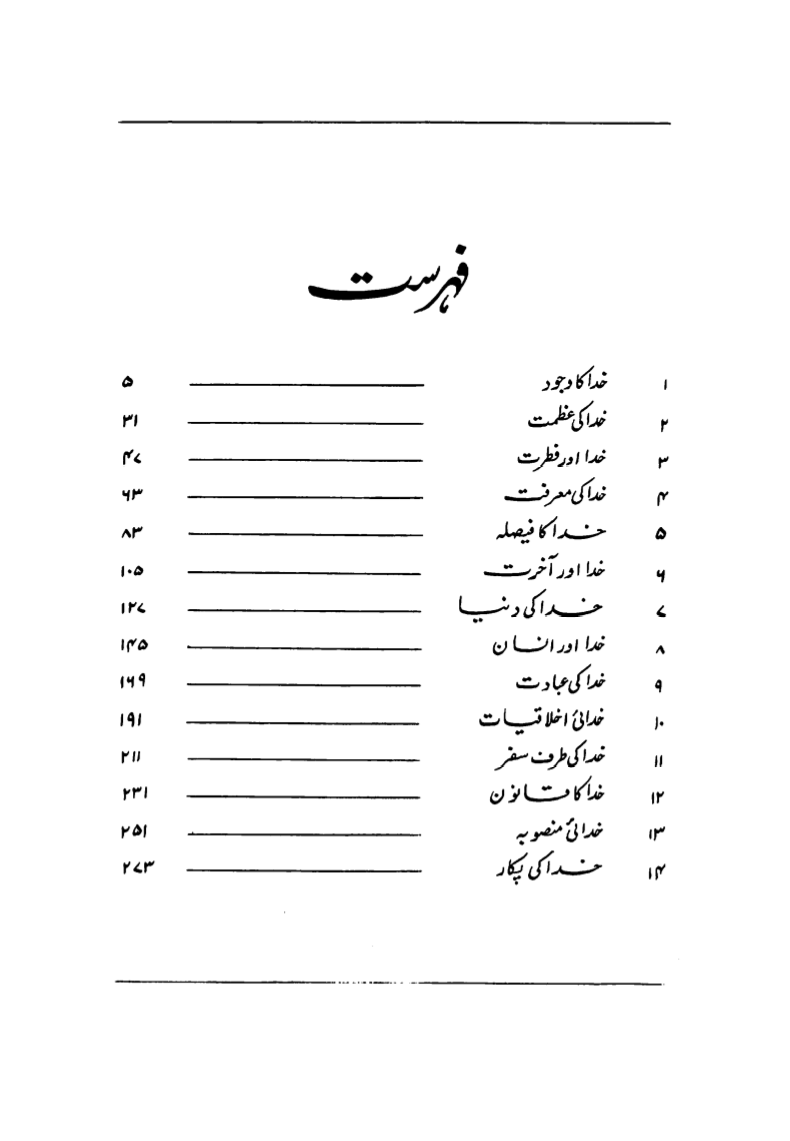 فہرست
۱ خدا کا وجود ۵
۲ خدا کی عظمت ۳۱
۳ خدا اور فطرت ۴۷
۴ خدا کی معرفت ۶۳
۵ خدا کا فیصلہ ۸۳
۶ خدا اور آخرت ۱۰۵
۷ خدا کی دنیا ۱۲۷
۸ خدا اور انسان ۱۴۵
۹ خدا کی عبادت ۱۶۹
۱۰ خدائی اخلاقیات ۱۹۱
۱۱ خدا کی طرف سفر ۲۱۱
۱۲ خدا کا قانون ۲۳۱
۱۳ خدائی منصوبہ ۲۵۱
۱۴ خدا کی پکار ۲۷۳